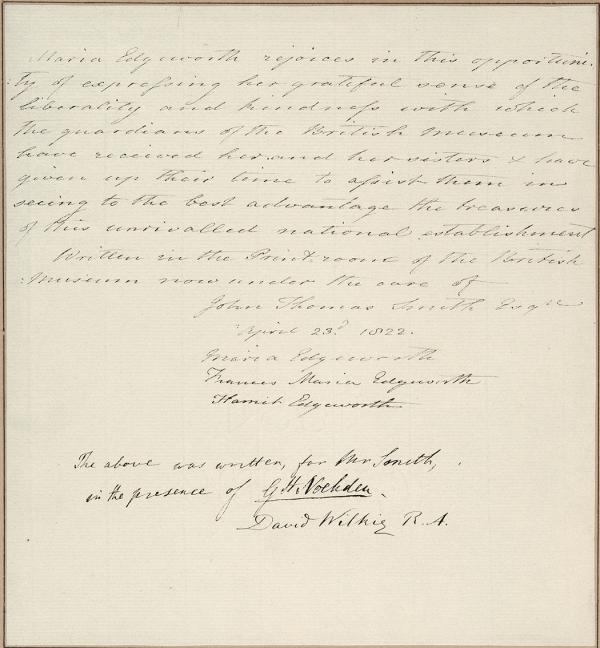 Maria Edgeworth rejoices in this opportuni-
:ty of expressing her grateful sense of the
liberality and kindness with which
the guardians of the British Museum
have received her and her sisters & have
given up their time to assist them in
seeing to the best advantage the treasures
of this unrivalled national establishment
Written in the Print room of the British
:Museum now under the care of
John Thomas Smith Esqre
April 23d 1822.
Maria Edgeworth
Frances Maria Edgeworth
Harriet Edgeworth
The above was written, for Mr Smith,
in the presence of G H Noehden.
David Wilkie R.A.